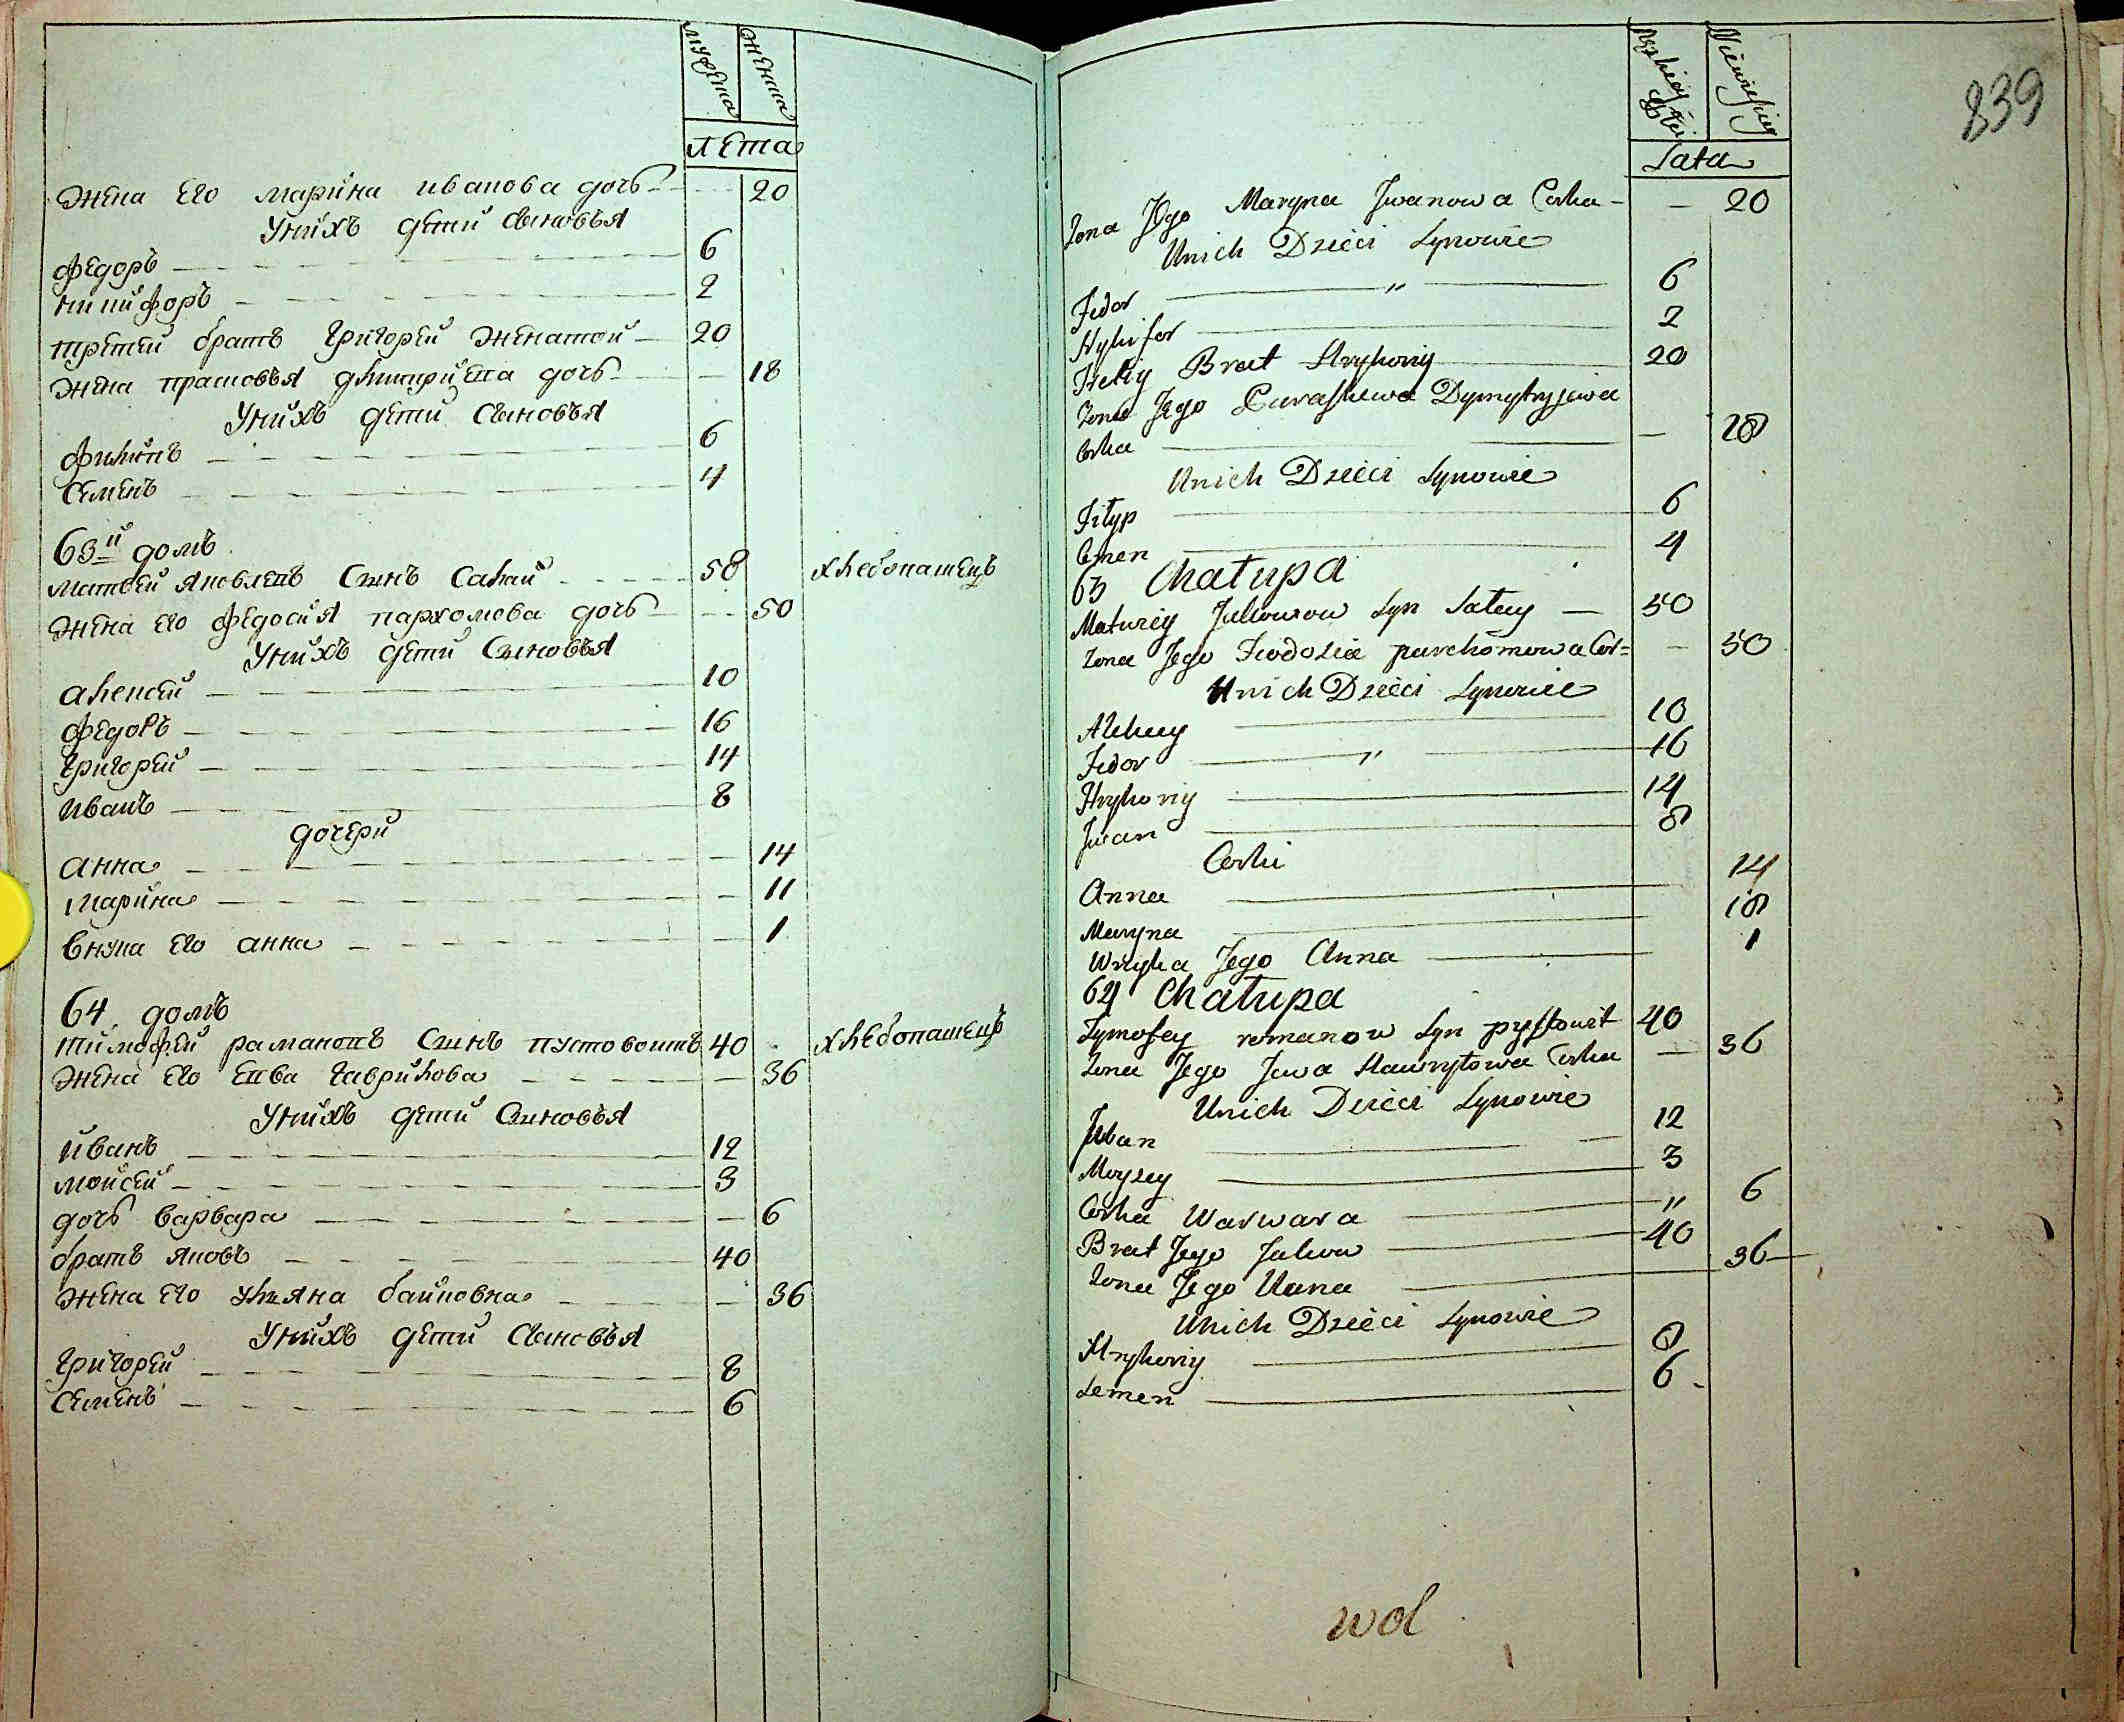 мужеска
женска
лета
жена его марина иванова дочь 20
у нихъ дети сыновья
федоръ 6
никифоръ 2
третей братъ григорей женатой 20
жена прасковья дмитриева дочь 18
у нихъ дети сыновья
филипъ 6
семенъ 4
63й домъ
матвей яковлевъ сынъ сакай 58 хлебопашецъ
жена его федосия пархомова дочь 50
у нихъ дети сыновья
алексей 10
федоръ 16
григорей 14
иванъ 8
дочери
анна 14
марина 11
внука его анна 1
64 домъ
тимофей рамановъ сынъ пустовоитъ 40 хлебопашецъ
жена его евва гаврилова 36
у нихъ дети сыновья
иванъ 12
мойсей 3
дочь варвара 6
братъ яковъ 40
жена его ульяна байковна 36
у нихъ дети сыновья
григорей 8
семенъ 6
839
Lata
Zona Jego Maryna Jwanowa Corka 20
Unich Dzieci Synowie
Fedor " 6
Nykifor 2
Tretiy Brat Hryhoriy 20
Zona Jego Paraskewa Dymytryjewa
Corka 28
Unich Dzieci Synowie
Filyp 6
Semen 4
63 Chałupa
Matwiey Jakowow Syn Sakay 50
Zona Jego Feodozia parchomowa Cor= 50
Unich Dzieci Synowie
Alexey 10
Fedor " 16
Hryhoriy 14
Jwan 8
Corki
Anna 14
Maryna 18
Wnuka Jego Anna 1
64 Chałupa
Tymofey romanow Syn pystowit 40
Zona Jego Jewa Hawryłowa Corka 36
Unich Dzieci Synowie
Jwan 12
Moyzey 3
Corka Warwara " 6
Brat Jego Jakow 40
Zona Jego Ulana 36
Unich Dzieci Synowie
Hryhoriy 8
Semen 6
wol